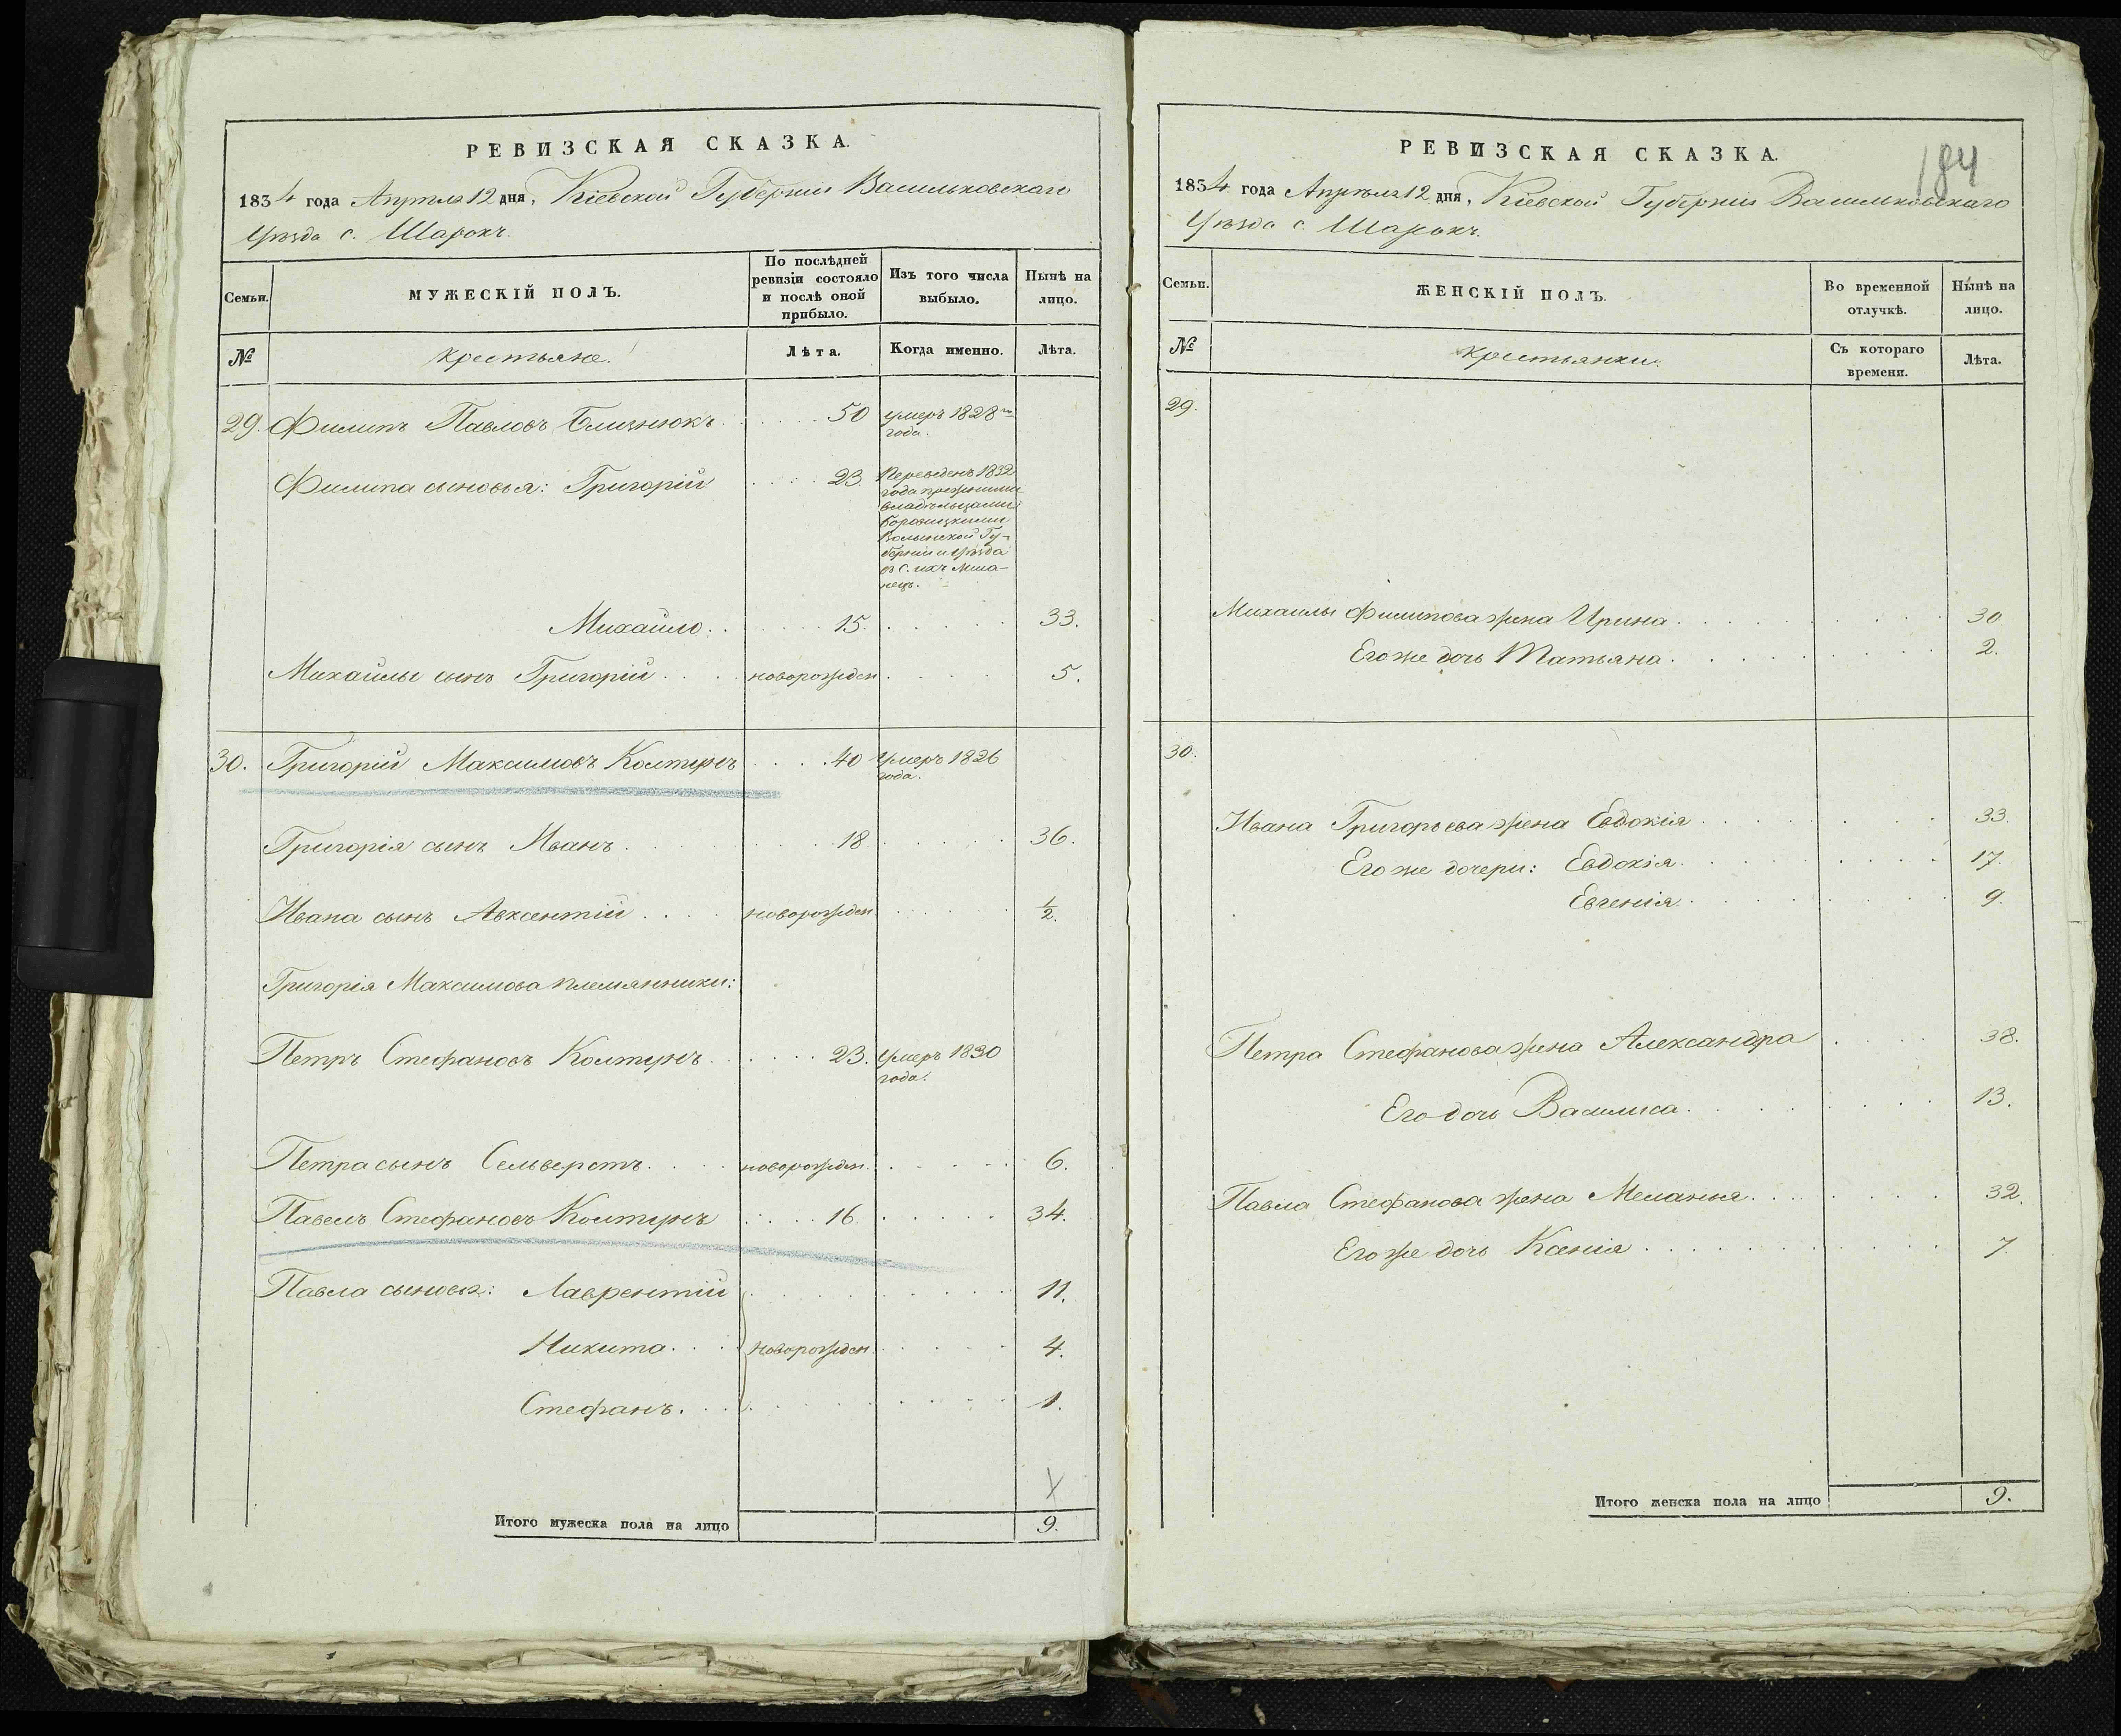 РЕВИЗСКАЯ СКАЗКА.
1834 года Апреля 12 дня, Кіевской Губерніи Васильковскаго
Уѣзда с. Шарокъ.
Семьи.
МУЖЕСКІЙ ПОЛЪ.
По послѣдней ревизіи состояло и послѣ оной прибыло.
Изъ того числа выбыло.
Нынѣ на лицо.
№
крестьяне.
Лѣта.
Когда именно.
Лѣта.
29. Филипъ Павловъ Близнюкъ 50 умеръ 1828го
года.
Филипа сыновья: Григорій 23. Переведенъ 1832
года прежними
владѣльцами
Волынской Гу-
берніи и Уѣзда
въ с. ихъ Миа-
нецъ.
Михайло. 15. 33.
Михайлы сынъ Григорій новорожден 5.
30. Григорій Максимовъ Колтунъ 40 Умеръ 1826
года.
Григорія сынъ Иванъ 18 36.
Ивана сынъ Авксентій новорожден 1/2.
Григорія Максимова племянники:
Петръ Стефановъ Колтунъ 23. Умеръ 1830
года.
Петра сынъ Сельверстъ. новорожден. 6.
Павелъ Стефановъ Колтунъ 16 34.
Павла сыновья: Лаврентій 11.
Никита новорожден 4.
Стефанъ. 1.
Итого мужеска пола на лицо 9.
РЕВИЗСКАЯ СКАЗКА.
184
1834 года Апрѣля 12 дня, Кіевской Губерніи Васильковскаго
Уѣзда с. Шарокъ.
Семьи.
ЖЕНСКІЙ ПОЛЪ.
Во временной отлучкѣ.
Нынѣ на лицо.
№
крестьянки.
Съ котораго времени.
Лѣта.
29.
Михайлы Филипова жена Ирина 30
Его же дочь Татьяна. 2.
30.
Ивана Григорьева жена Евдокія 33.
Его же дочери: Евдокія. 17.
Евгенія. 9.
Петра Стефанова жена Александра 38.
Его дочь Василиса. 13.
Павла Стефанова жена Меланья. 32.
Его же дочь Ксенія 7.
Итого женска пола на лицо 9.